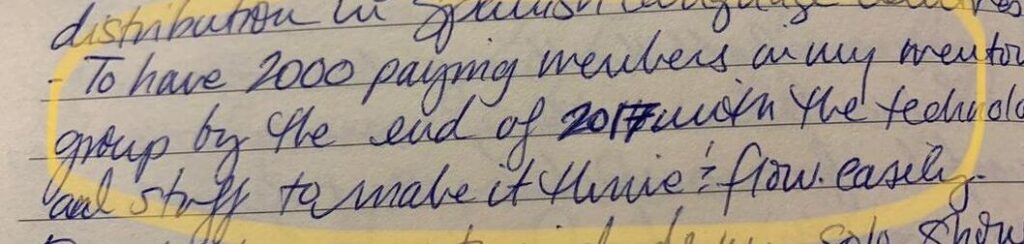 distribution in Spanish language
- To have 2000 paying members in my mentor
group by the end of 2017 with the technolo
and staff to make it thrive & flow easily.
solo show